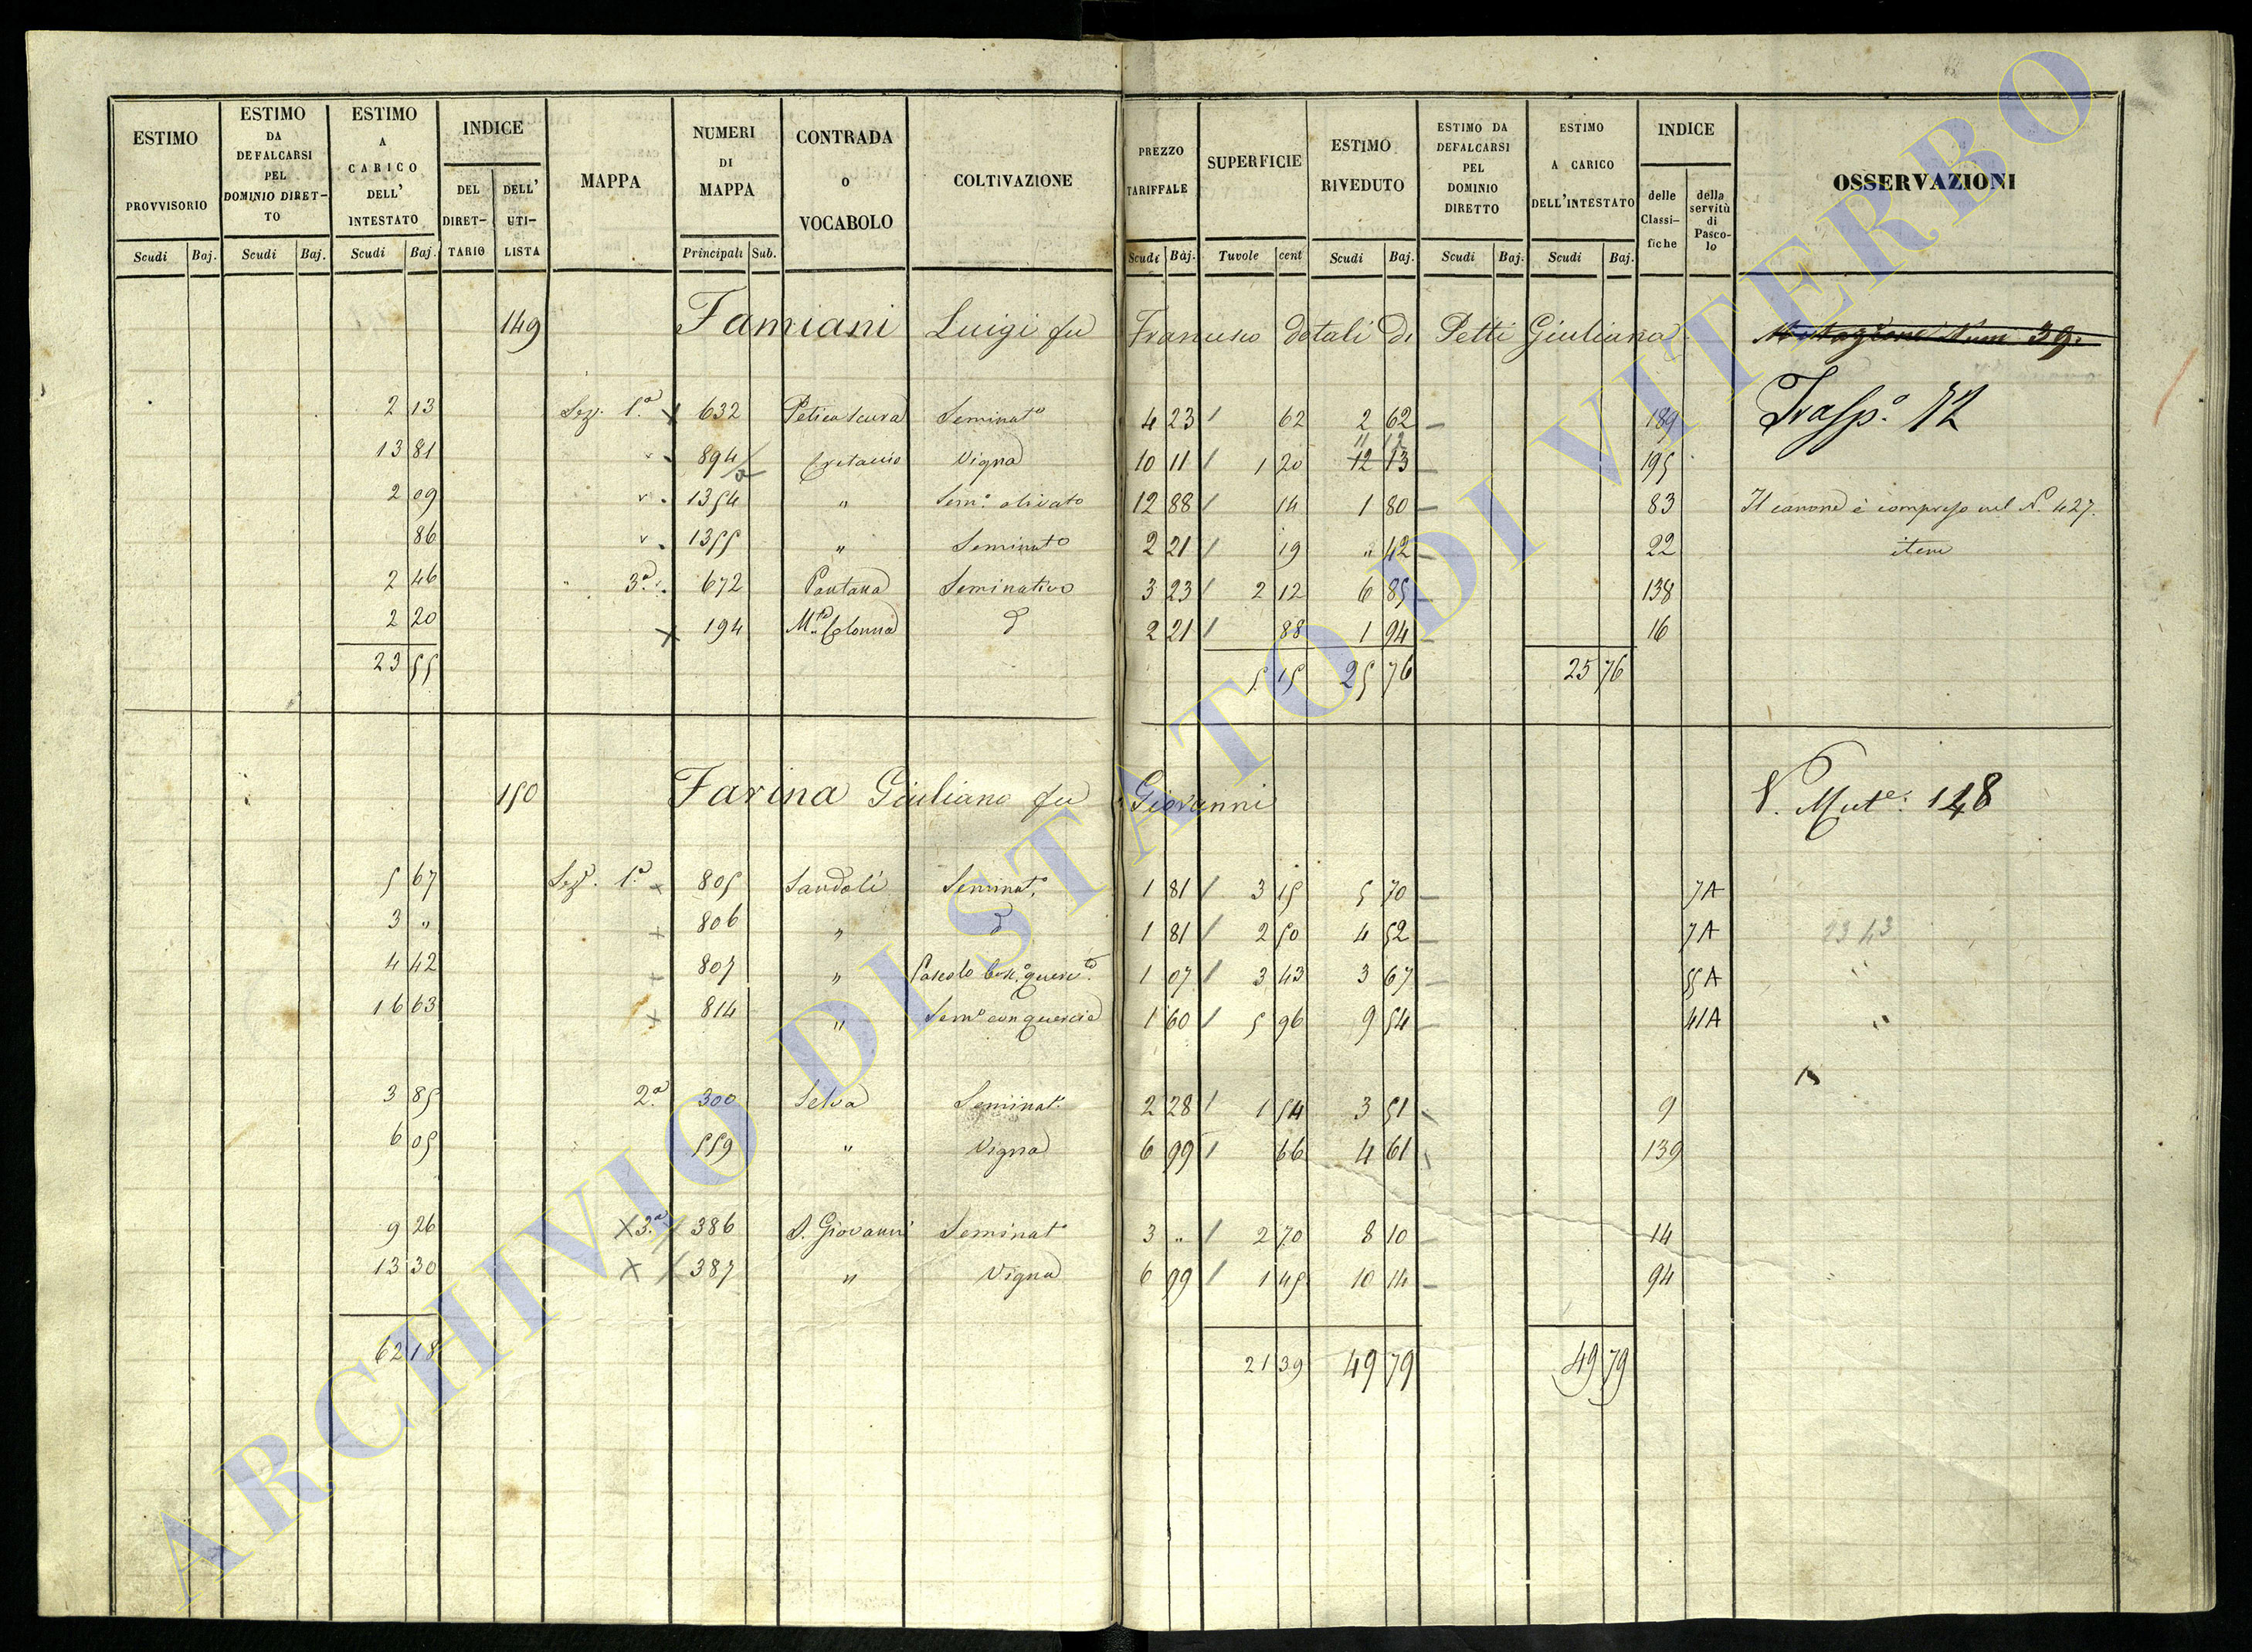 ESTIMO PROVVISORIO Scudi Baj.
ESTIMO DA DEFALCARSI PEL DOMINIO DIRET- TO Scudi Baj.
ESTIMO A CARICO DELL' INTESTATO Scudi Baj.
INDICE DEL DIRET- TARIO DELL' UTI- LISTA
MAPPA
NUMERI DI MAPPA Principali Sub.
CONTRADA O VOCABOLO
COLTIVAZIONE
PREZZO TARIFFALE Scudi Baj.
SUPERFICIE Tavole cent
ESTIMO RIVEDUTO Scudi Baj.
ESTIMO DA DEFALCARSI PEL DOMINIO DIRETTO Scudi Baj.
ESTIMO A CARICO DELL'INTESTATO Scudi Baj.
INDICE delle Classi- fiche della servitù di Pasco- lo
OSSERVAZIONI
149 Famiani Luigi fu Francesco dotali di Petti Giuliana
Trasp.º 72
2 13 Sez. 1.ª 632 Seminatº 4 23 62 2 62 189
13 81 894 Vigna 10 11 1 20 12 13 11 12 195
2 09 1354 " Sem.º olivato 12 88 14 1 80 83 Il canone è compreso nel N. 427.
86 1355 " Seminatº 2 21 19 " 42 22 item
2 46 3.ª 672 Pantana Seminativo 3 23 2 12 6 85 138
2 20 194 M.te Colonna d 2 21 88 1 94 16
23 55 5 15 25 76 25 76
150 Farina Giuliano fu Giovanni V. Mut.e 148
5 67 Sez. 1.ª 805 Sandoli Seminat. 1 81 3 15 5 70 7A
3 " 806 " d 1 81 2 50 4 52 7A
4 42 807 " Pascolo 1 07 3 43 3 67 55A
16 63 814 " Sem.º con quercie 1 60 5 96 9 54 41A
3 85 2.ª 300 Selva Seminat. 2 28 1 54 3 51 9
6 05 559 " Vigna 6 99 66 4 61 139
9 26 3.ª 386 S. Giovanni Seminatº 3 " 2 70 8 10 14
13 30 387 " Vigna 6 99 1 45 10 14 94
62 18 21 39 49 79 49 79
ARCHIVIO DI STATO DI VITERBO